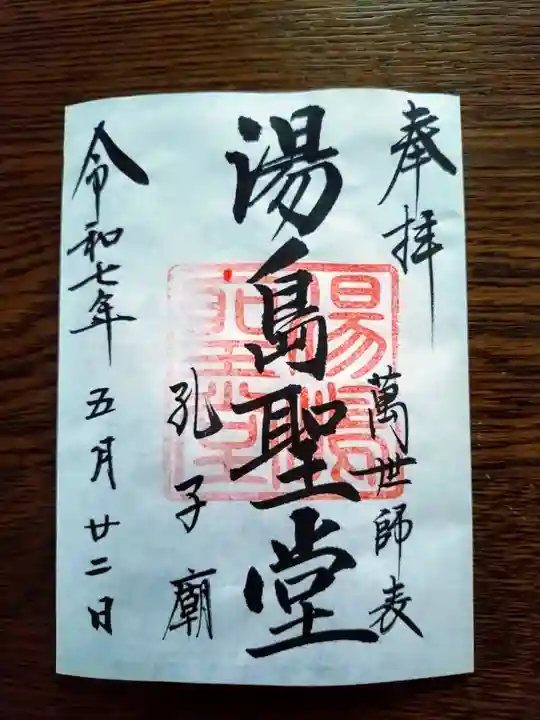 奉拝
萬世師表
湯島聖堂
孔子廟
令和七年五月廿二日